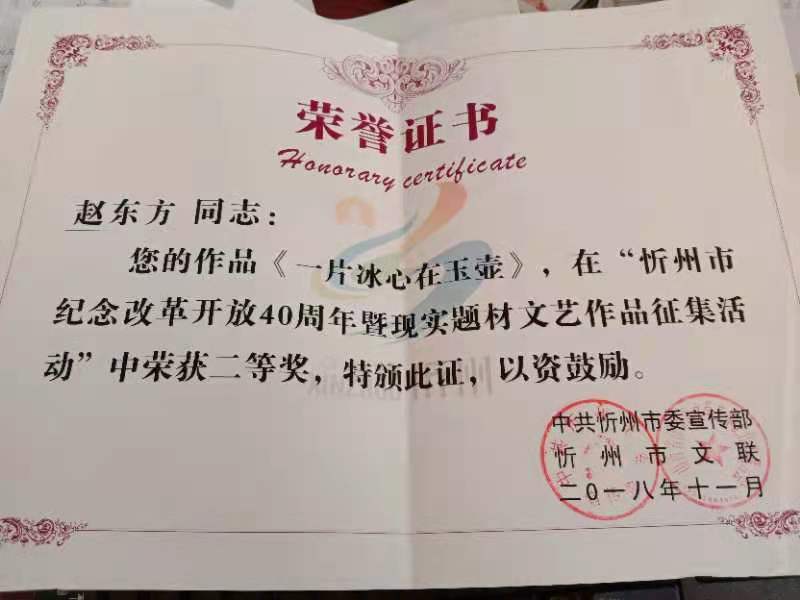 荣誉证书
Honorary certificate
赵东方 同志：
您的作品《一片冰心在玉壶》，在“忻州市
纪念改革开放40周年暨现实题材文艺作品征集活
动”中荣获二等奖，特颁此证，以资鼓励。
中共忻州市委宣传部
忻州市文联
二〇一八年十一月